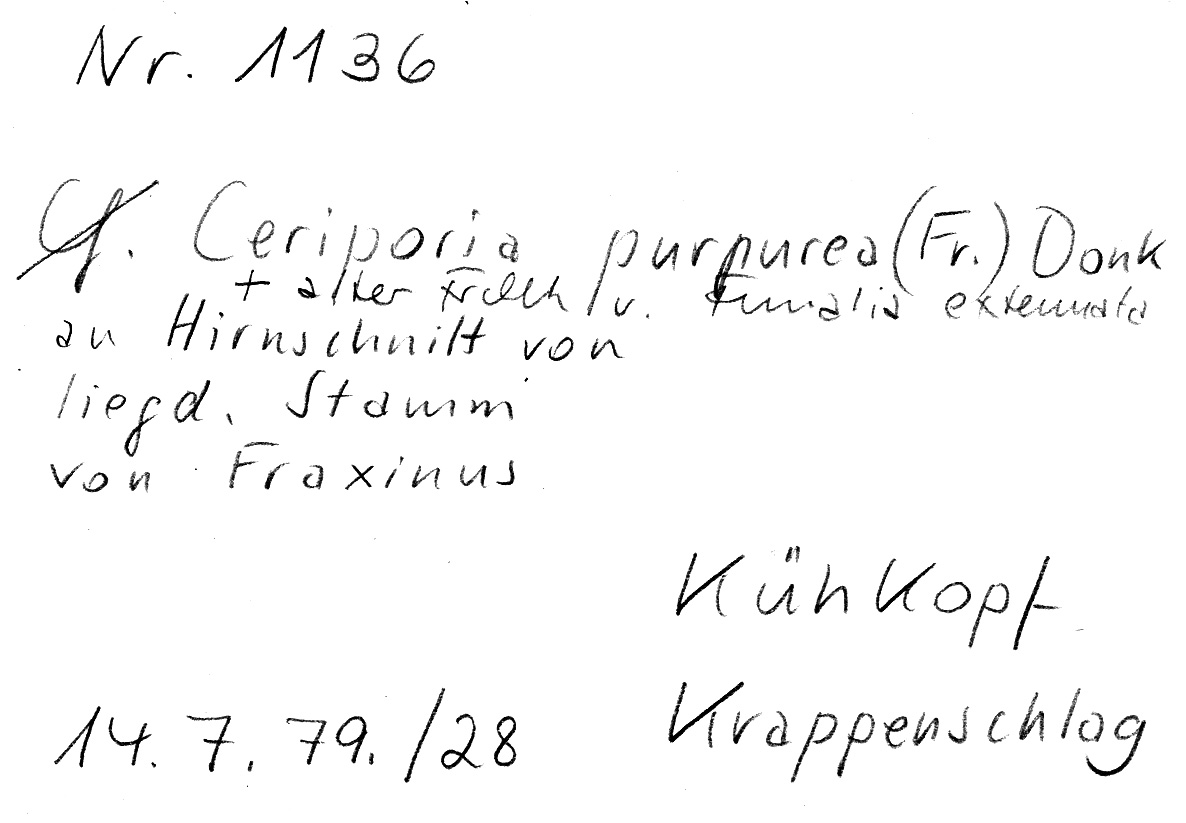 Nr. 1136
Cf. Ceriporia purpurea (Fr.) Donk
+ alter Frkch v. Funalia extenuata
an Hirnschnitt von
liegd. Stamm
von Fraxinus
Kühkopf
Krappenschlag
14. 7. 79. /28